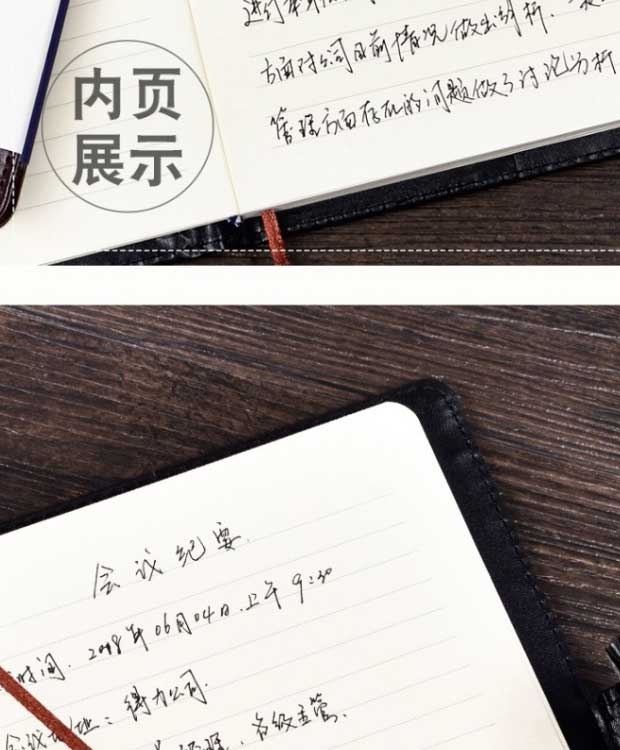 内页
展示
进行
方面对公司目前情况做出分析、
管理方面存在的问题做了讨论分析
会议纪要
时间：2018年06月04日.上午9:30
会议地址：得力公司.
经理、各级主管、